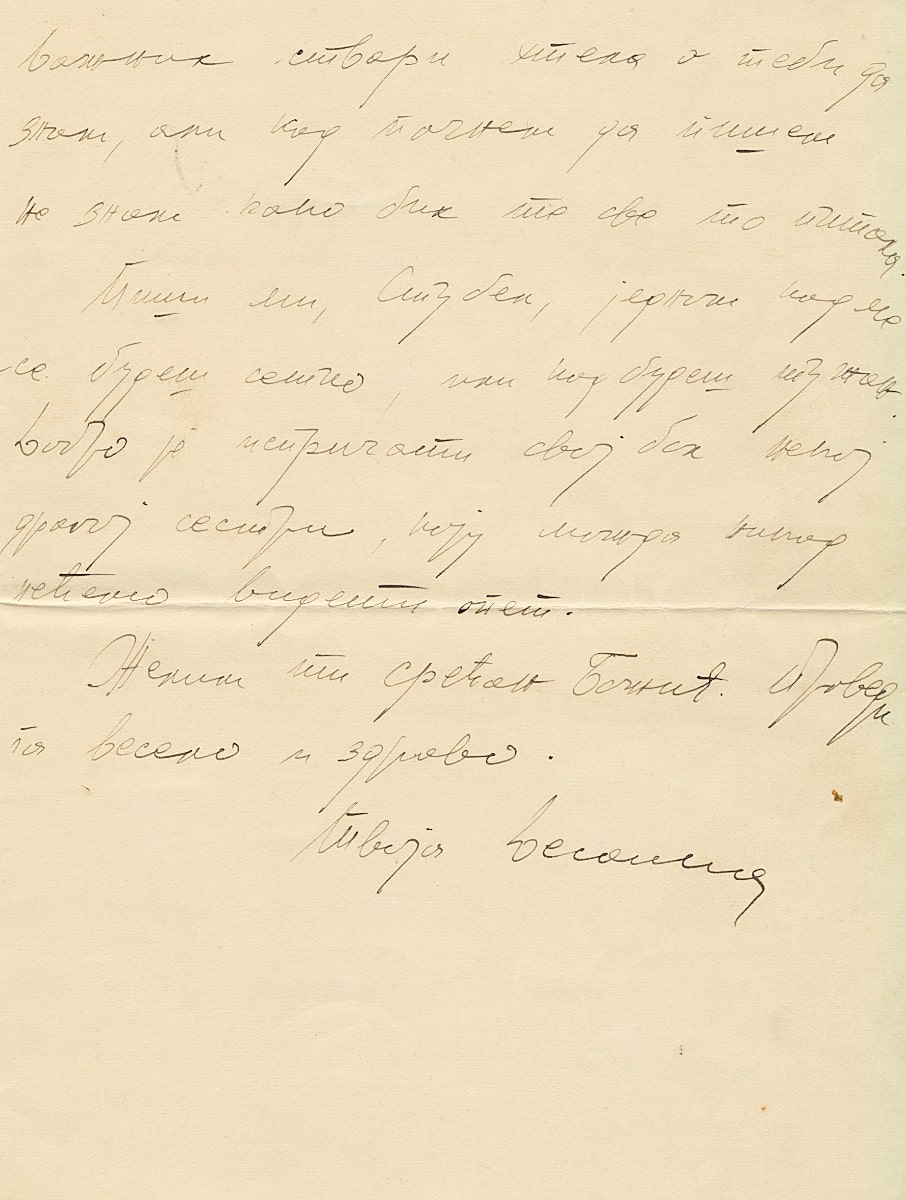 важних ствари хтела о теби да
знам, али кад почнем да пишем
не знам како бих те све то питала.
Пиши ми, Стубен, једном кад ме
се будеш сетио, или кад будеш тужан.
Добро је испричати свој бол некој
драгој сестри, коју можда никад
нећемо видети опет.
Желим ти срећан Божић. Проведи
га весело и здраво.
Твоја